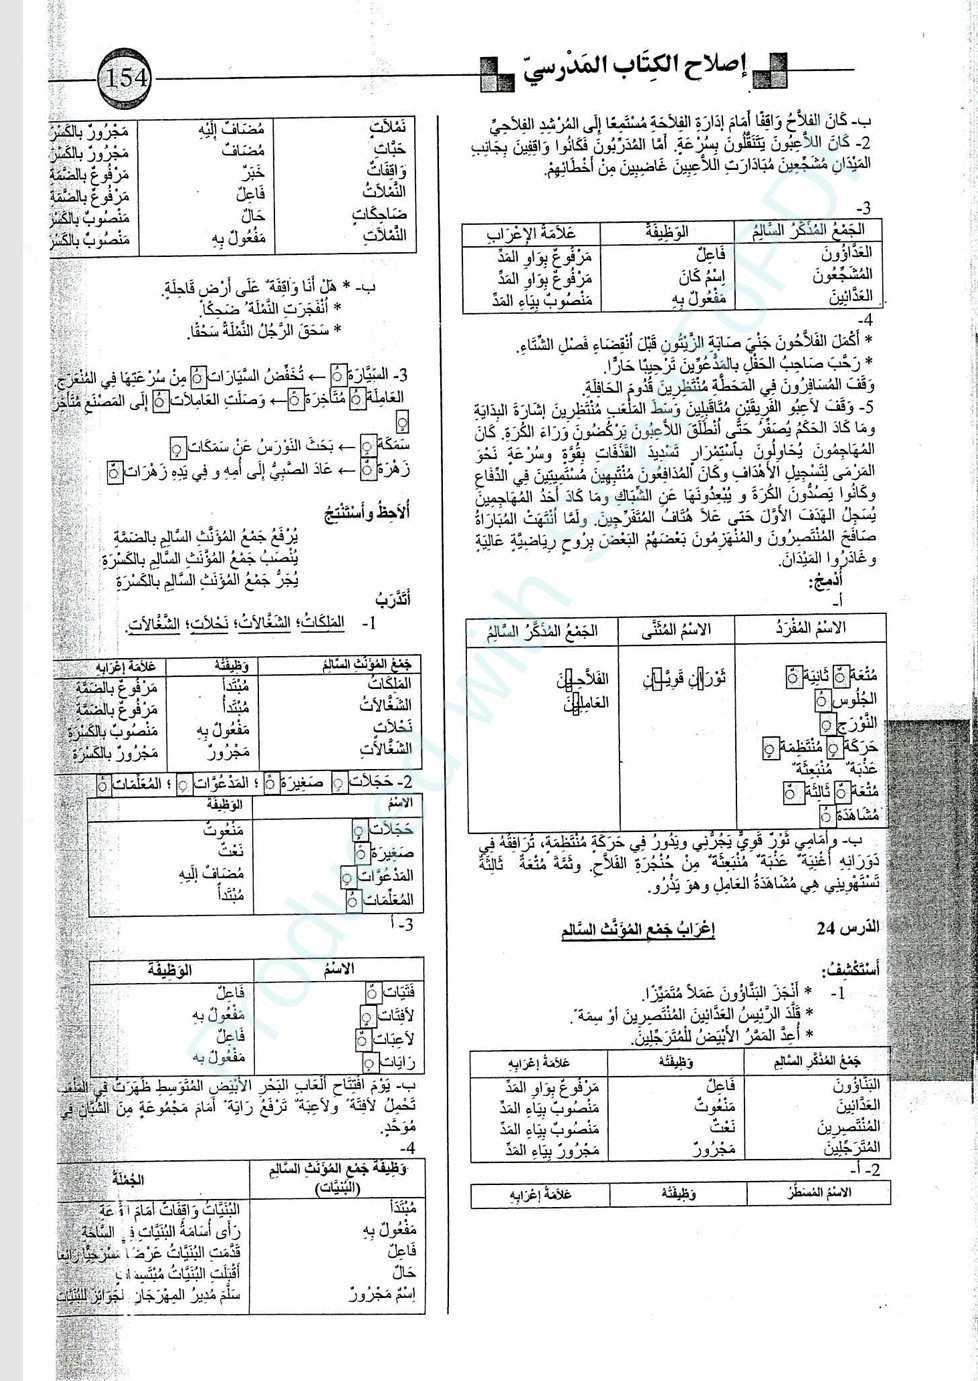 إصلاح الكِتَاب المَدْرسيّ
154
ب- كَانَ الفَلاَّحُ وَاقِفًا أَمَامَ إدَارَةِ الفِلاَحَةِ مُسْتَمِعًا إلَى المُرْشِدِ الفِلاَحِيِّ
2- كَانَ اللاَّعِبُونَ يَتَنَقَّلُونَ بِسُرْعَةٍ. أَمَّا المُدَرِّبُونَ فَكَانُوا وَاقِفِينَ بِجَانِبِ
المَيْدَانِ مُشَجِّعِينَ مُبَادَارَتِ اللاَّعِبِينَ غَاضِبِينَ مِنْ أَخْطَائِهِمْ.
3-
الجَمْعُ المُذَكَّرُ السَّالِمُ الوَظِيفَةُ عَلاَمَةُ الإعْرَابِ
العَدَّاؤُونَ فَاعِلٌ مَرْفُوعٌ بِوَاوِ المَدِّ
المُشَجِّعُونَ اِسْمُ كَانَ مَرْفُوعٌ بِوَاوِ المَدِّ
العَدَّائِينَ مَفْعُولٌ بِهِ مَنْصُوبٌ بِيَاءِ المَدِّ
4-
* أَكْمَلَ الفَلاَّحُونَ جَنْيَ صَابَةِ الزَّيْتُونِ قَبْلَ اُنْقِضَاءِ فَصْلِ الشِّتَاءِ.
* رَحَّبَ صَاحِبُ الحَفْلِ بِالمَدْعُوِّينَ تَرْحِيبًا حَارًّا.
وَقَفَ المُسَافِرُونَ فِي المَحَطَّةِ مُنْتَظِرِينَ قُدُومَ الحَافِلَةِ.
5- وَقَفَ لاَعِبُو الفَرِيقَيْنِ مُتَقَابِلِينَ وَسَطَ المَلْعَبِ مُنْتَظِرِينَ إشَارَةَ البِدَايَةِ
ومَا كَادَ الحَكَمُ يُصَفِّرُ حَتَّى اُنْطَلَقَ اللاَّعِبُونَ يَرْكُضُونَ وَرَاءَ الكُرَةِ. كَانَ
المُهَاجِمُونَ يُحَاوِلُونَ بِاسْتِمْرَارٍ تَسْدِيدَ القَذَفَاتِ بِقُوَّةٍ وسُرْعَةٍ نَحْوَ
المَرْمَى لِتَسْجِيلِ الأَهْدَافِ وكَانَ المُدَافِعُونَ مُنْتَبِهِينَ مُسْتَمِيتِينَ فِي الدِّفَاعِ
وكَانُوا يَصُدُّونَ الكُرَةَ و يُبْعِدُونَهَا عَنِ الشِّبَاكِ ومَا كَادَ أَحَدُ المُهَاجِمِينَ
يُسَجِّلُ الهَدَفَ الأَوَّلَ حَتى عَلاَ هُتَافُ المُتَفَرِّجِينَ. ولَمَّا اُنْتَهَتْ المُبَارَاةُ
صَافَحَ المُنْتَصِرُونَ والمُنْهَزِمُونَ بَعْضُهُمُ البَعْضَ بِرُوحٍ رِيَاضِيَّةٍ عَالِيَةٍ
وغَادَرُوا المَيْدَانَ.
أَدْمِجُ:
أ-
الاسْمُ المُفْرَدُ الاسْمُ المُثَنَّى الجَمْعُ المُذَكَّرُ السَّالِمُ
مُتْعَةٌ ثَانِيَةٌ ثَوْرَانِ قَوِيَّانِ الفَلاَّحِينَ
الجُلُوسُ العَامِلِينَ
النَّوْرَجِ
حَرَكَةٍ مُنْتَظِمَةٍ
عَذْبَةٌ مُنْبَعِثَةٌ
مُتْعَةٌ ثَالِثَةٌ
مُشَاهَدَةُ
ب- وأَمَامِي ثَوْرٌ قَوِيٌّ يَجُرُّنِي ويَدُورُ فِي حَرَكَةٍ مُنْتَظِمَةٍ، تُرَافِقُهُ فِي
دَوَرَانِهِ أُغْنِيَةٌ عَذْبَةٌ مُنْبَعِثَةٌ مِنْ حُنْجُرَةِ الفَلاَّحِ. وثَمَّةَ مُتْعَةٌ ثَالِثَةٌ
تَسْتَهْوِينِي هِي مُشَاهَدَةُ العَامِلِ وهوَ يَذْرُو.
الدّرس 24 إعْرَابُ جَمْعِ المُؤَنَّثِ السَّالم
أَسْتَكْشِفُ:
1- * أَنْجَزَ البَنَّاؤُونَ عَمَلاً مُتَمَيِّزًا.
* قَلَّدَ الرَّئِيسُ العَدَّائِينَ المُنْتَصِرِينَ أَوْسِمَةً.
* أُعِدَّ المَمَرُّ الأَبْيَضُ لِلْمُتَرَجِّلِينَ.
جَمْعُ المُذَكَّرِ السَّالِمِ وَظِيفَتُهُ عَلاَمَةُ إعْرَابِهِ
البَنَّاؤُونَ فَاعِلٌ مَرْفُوعٌ بِوَاوِ المَدِّ
العَدَّائِينَ مَنْعُوتٌ مَنْصُوبٌ بِيَاءِ المَدِّ
المُنْتَصِرِينَ نَعْتٌ مَنْصُوبٌ بِيَاءِ المَدِّ
المُتَرَجِّلِينَ مَجْرُورٌ مَجْرُورٌ بِيَاءِ المَدِّ
2- أ-
الاسْمُ المُسَطَّرُ وَظِيفَتُهُ عَلاَمَةُ إعْرَابِهِ
نَمْلاَتٍ مُضَافٌ إلَيْهِ مَجْرُورٌ بِالكَسْرَ
حَبَّاتِ مُضَافٌ مَجْرُورٌ بِالكَسْرَ
وَاقِفَاتٌ خَبَرٌ مَرْفُوعٌ بِالضَّمَّةِ
النَّمْلاَتُ فَاعِلٌ مَرْفُوعٌ بِالضَّمَّةِ
ضَاحِكَاتٍ حَالٌ مَنْصُوبٌ بِالكَسْرَ
النَّمْلاَتِ مَفْعُولٌ بِهِ مَنْصُوبٌ بِالكَسْرَ
ب- * هَلْ أَنَا وَاقِفَةٌ عَلَى أَرْضٍ قَاحِلَةٍ.
* اُنْفَجَرَتِ النَّمْلَةُ ضَحِكًا.
* سَحَقَ الرَّجُلُ النَّمْلَةَ سَحْقًا.
3- السَّيَّارَةُ ← تُخَفِّضُ السَّيَّارَاتُ مِنْ سُرْعَتِهَا فِي المُنْعَرَجِ.
العَامِلَةُ مُتَأَخِّرَةً ← وَصَلَتِ العَامِلاَتُ إلَى المَصْنَعِ مُتَأَخِّرَ
سَمَكَةٍ ← بَحَثَ النَّوْرَسُ عَنْ سَمَكَاتٍ
زَهْرَةٌ ← عَادَ الصَّبِيُّ إلَى أُمِهِ و فِي يَدِهِ زَهْرَاتٌ
أُلاَحِظُ وأَسْتَنْتِجُ
يُرْفَعُ جَمْعُ المُؤَنَّثِ السَّالِمِ بِالضمَّةِ
يُنْصَبُ جَمْعُ المُؤَنَّثِ السَّالِمِ بِالكَسْرَةِ
يُجَرُّ جَمْعُ المُؤَنَّثِ السَّالِمِ بِالكَسْرَةِ
أَتَدَرَّبُ
1- المَلِكَاتُ؛ الشَّغَّالاَتُ؛ نَحْلاَتٍ؛ الشَّغَّالاَتِ.
جَمْعُ المُؤَنَّثِ السَّالِمِ وَظِيفَتُهُ عَلاَمَةُ إعْرَابِهِ
المَلِكَاتُ مُبْتَدَأٌ مَرْفُوعٌ بِالضَّمَّةِ
الشَّغَّالاَتُ مُبْتَدَأٌ مَرْفُوعٌ بِالضَّمَّةِ
نَحْلاَتٍ مَفْعُولٌ بِهِ مَنْصُوبٌ بِالكَسْرَةِ
الشَّغَّالاَتِ مَجْرُورٌ مَجْرُورٌ بِالكَسْرَةِ
2- حَجَلاَتٍ صَغِيرَةٌ ؛ المَدْعُوَّاتِ ؛ المُعَلِّمَاتُ
الاسْمُ الوَظِيفَةُ
حَجَلاَتٍ مَنْعُوتٌ
صَغِيرَةٌ نَعْتٌ
المَدْعُوَّاتِ مُضَافٌ إلَيهِ
المُعَلِّمَاتُ مُبْتَدَأٌ
3- أ
الاسْمُ الوَظِيفَةُ
فَتَيَاتٌ فَاعِلٌ
لاَفِتَاتٍ مَفْعُولٌ بِهِ
لاَعِبَاتٌ فَاعِلٌ
رَايَاتٍ مَفْعُولٌ بِهِ
ب- يَوْمَ افْتِتَاحِ أَلْعَابِ البَحْرِ الأَبْيَضِ المُتَوَسِطِ ظَهَرَتْ فِي المَلْعَبِ
تَحْمِلُ لاَفِتَةً ولاَعِبَةٌ تَرْفَعُ رَايَةً أَمَامَ مَجْمُوعَةٍ مِنَ الشُّبَّانِ فِي
مُوَحَّدٍ.
4-
وَظِيفَةُ جَمْعِ المُؤَنَّثِ السَّالِمِ (البُنَيَّات) الجُمْلَةُ
مُبْتَدَأٌ البُنَيَّاتُ وَاقِفَاتٌ أَمَامَ
مَفْعُولٌ بِهِ رَأَى أُسَامَةُ البُنَيَّاتِ فِي السَّاحَةِ
فَاعِلٌ قَدَّمَتِ البُنَيَّاتُ عَرْضًا مَسْرَحِيًّا رَائِعًا
حَالٌ أَقْبَلَتِ البُنَيَّاتُ مُبْتَسِمَاتٍ
اِسْمٌ مَجْرُورٌ سَلَّمَ مُدِيرُ المِهْرَجَانِ الجَوَائِزَ لِلْبُنَيَّاتِ
Produced with ScanTOPDF